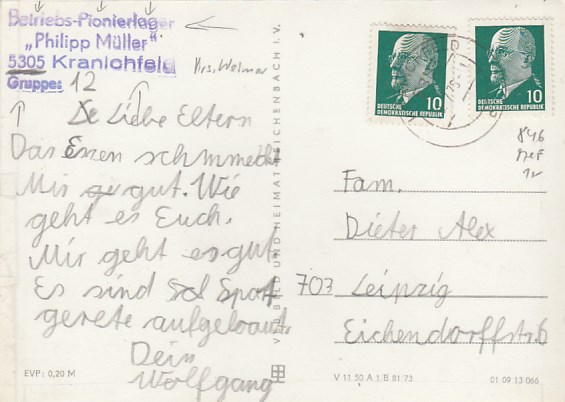 Betriebs-Pionierlager
„Philipp Müller"
5305 Kranichfeld
Krs. Weimar
Gruppe: 12
Liebe Eltern
Das Essen schmmeckt
Mir gut. Wie
geht es Euch.
Mir geht es gut.
Es sind Sport
gerete aufgebaut.
Dein
Wolfgang
EVP: 0,20 M
VERLAG BILD UND HEIMAT REICHENBACH I. V.
10
DEUTSCHE
DEMOKRATISCHE REPUBLIK
10
DEUTSCHE
DEMOKRATISCHE REPUBLIK
846
MeF
Fam.
Dieter Alex
703 Leipzig
Eichendorffstr. 6
V 11 50 A 1/B 81/73
01 09 13 066